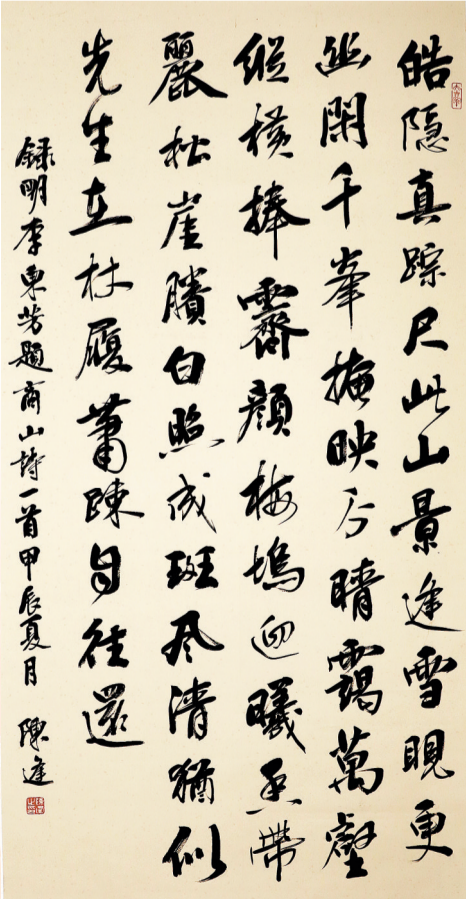 皓隐真踪尺此山景逢雪晛更
幽閑千峯掩映分晴靄萬壑
縱橫捧霽顔梅塢迎曦香帶
麗松崖賸白照成斑风清猶似
先生在杖履蕭疎自往還
録明李東芳題商山詩一首甲辰夏月 陳逢